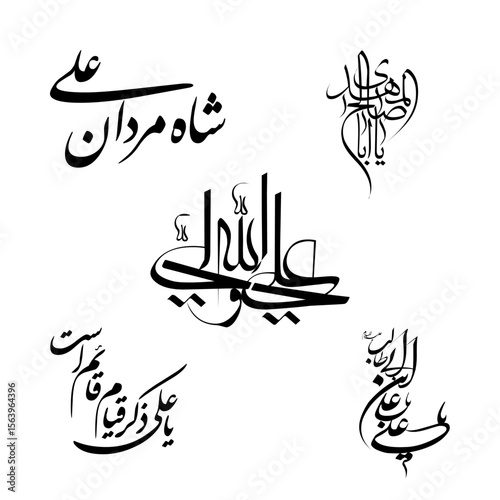 شاه مردان علی
یا اباصالح المهدی
علی ولی الله
یا علی ذکر قیام قائم است
یا علی ابن ابیطالب
Adobe Stock | #1563964396